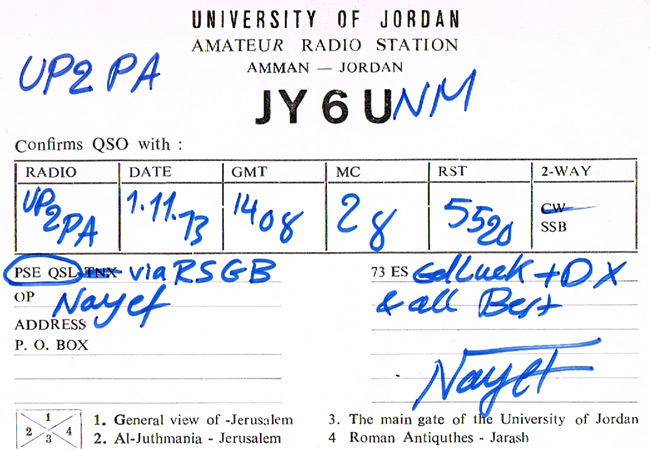 UNIVERSITY OF JORDAN
AMATEUR RADIO STATION
AMMAN — JORDAN
UP2PA
JY6UNM
Confirms QSO with :
RADIO DATE GMT MC RST 2-WAY
UP2PA 1.11.73 1408 28 5520 CW
SSB
PSE QSL TNX via RSGB 73 ES Gd Luck + DX
OP Nayef & all Best
ADDRESS
P. O. BOX
Nayef
1 2 3 4
1. General view of -Jerusalem 3. The main gate of the University of Jordan
2. Al-Juthmania - Jerusalem 4 Roman Antiquthes - Jarash